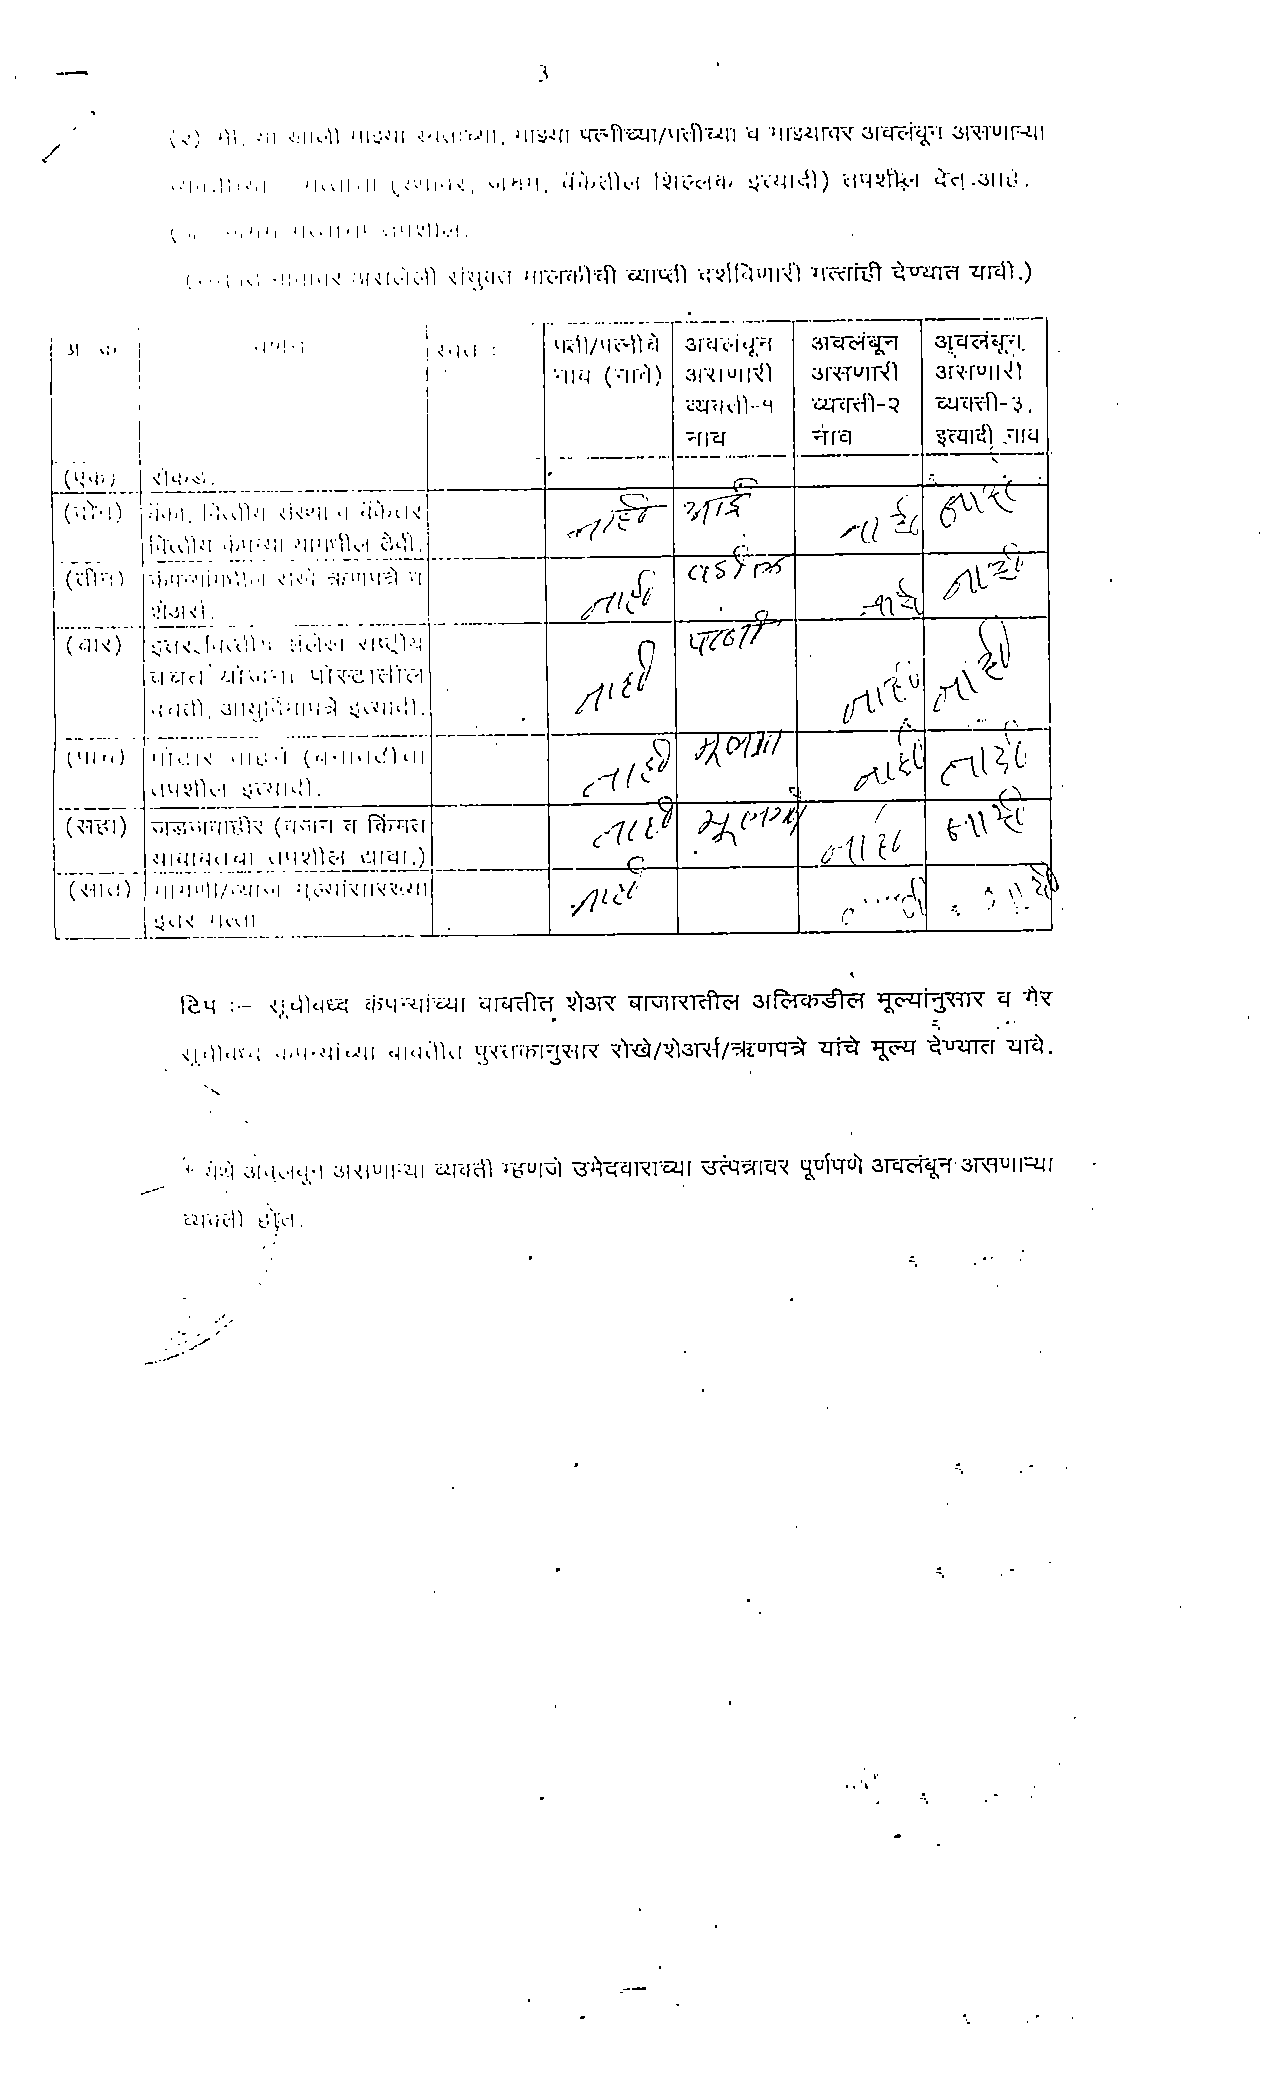 3
(२) मी, या खाली माझ्या स्वतःच्या, माझ्या पत्नीच्या/पतीच्या व माझ्यावर अवलंबून असणाऱ्या
मत्तांचा (स्थावर, जंगम, बँकेतील शिल्लक इत्यादी) तपशील देत आहे.
जंगम मत्तांचा तपशील.
नावावर असलेली संयुक्त मालकीची व्याप्ती दर्शविणारी मत्तांही देण्यात यावी.)
अ क्र वर्णन स्वतः पती/पत्नीचे अवलंबून अवलंबून अवलंबून
नाव (नावे) असणारी असणारी असणारी
व्यक्ती-१ व्यक्ती-२ व्यक्ती-३,
नाव नाव इत्यादी नाव
(एक) रोकड.
(दोन) बँका, वित्तीय संस्था व बँकेतर नाही आई नाही नाही
वित्तीय कंपन्या यामधील ठेवी.
(तीन) कंपन्यांमधील रोखे ऋणपत्रे व नाही वडील नाही नाही
शेअर्स.
(चार) इतर वित्तीय संलेख राष्ट्रीय नाही पत्नी नाही नाही
बचत योजना पोस्टातील
बचती, आयुर्विमापत्रे इत्यादी.
(पाच) मोटार वाहने (बनावटीचा नाही मूलगा नाही नाही
तपशील इत्यादी.
(सहा) जडजवाहीर (वजन व किंमत नाही मूलगी नाही नाही
याबाबतचा तपशील द्यावा.)
(सात) मागणी/व्याज मूल्यांसारख्या नाही
इतर मत्ता
टिप :- सूचीबध्द कंपन्यांच्या बाबतीत शेअर बाजारातील अलिकडील मूल्यांनुसार व गैर
सूचीबध्द कंपन्यांच्या बाबतीत पुस्तकानुसार रोखे/शेअर्स/ऋणपत्रे यांचे मूल्य देण्यात यावे.
* येथे अवलंबून असणाऱ्या व्यक्ती म्हणजे उमेदवाराच्या उत्पन्नावर पूर्णपणे अवलंबून असणाऱ्या
व्यक्ती होत.